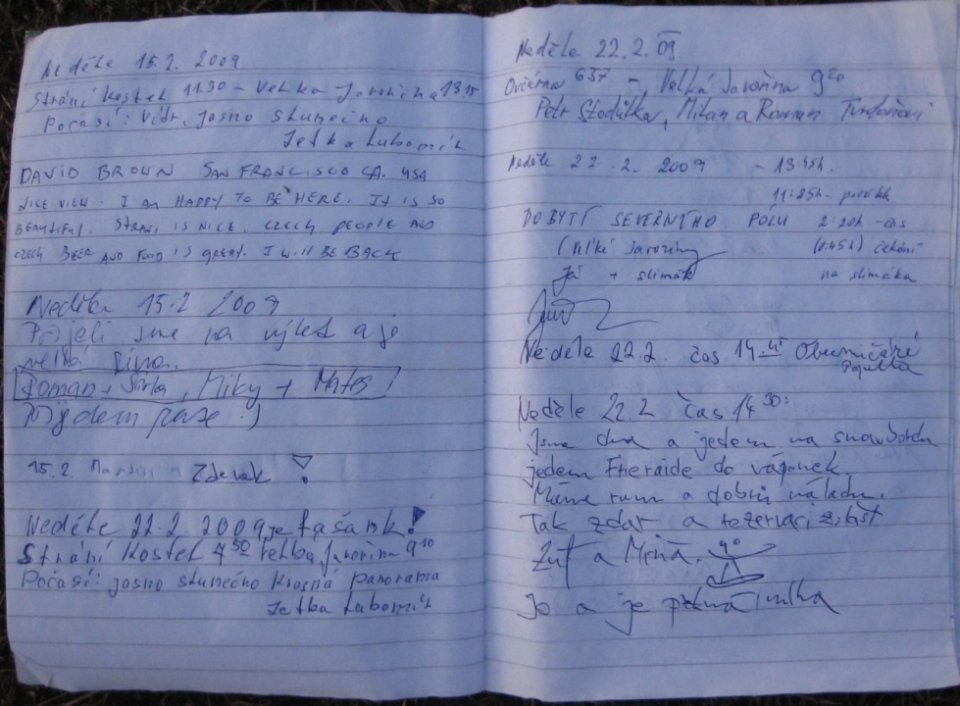 Neděle 15.2. 2009
Strání kostel 11.30 - Velká Javořina 13.15
Počasí: Vítr, jasno slunečno
Jetka Lubomír
DAVID BROWN SAN FRANCISCO CA. USA
NICE VIEW. I am HAPPY TO BE HERE. IT IS SO
BEAUTIFUL. STRANI IS NICE. CZECH PEOPLE AND
CZECH BEER AND FOOD IS GREAT. I WILL BE BACK
Neděle 15.2. 2009
Přijeli sme na výlet a je
velká zima.
Roman + Jirka, Miky + Matos
Přijdem zase :)
15.2. Zdenek !
Neděle 22.2. 2009 je fašank!
Strání kostel 7 50 velká Javořina 9 10
Počasí: jasno slunečno krásná panorama
Jetka Lubomír
Neděle 22.2. 09
Ovčírna 637 - Velká Javořina 9 20
Petr Milan a Roman
Neděle 22.2. 2009 - 13:45h.
11:25h -
DOBYTÍ SEVERNÍHO PÓLU 2:20h - čas
(Velké Javořiny (0:45h) čekání
Já + slimák na slimáka
Neděle 22.2. čas 14.45
Neděle 22.2 čas 14 30:
Jsme dva a jedem na snowbordu
jedem Freeride do vápenek.
Máme rum a dobrou náladu.
Tak zdar a
Zuf a Mrňa.
Jo a je mlha